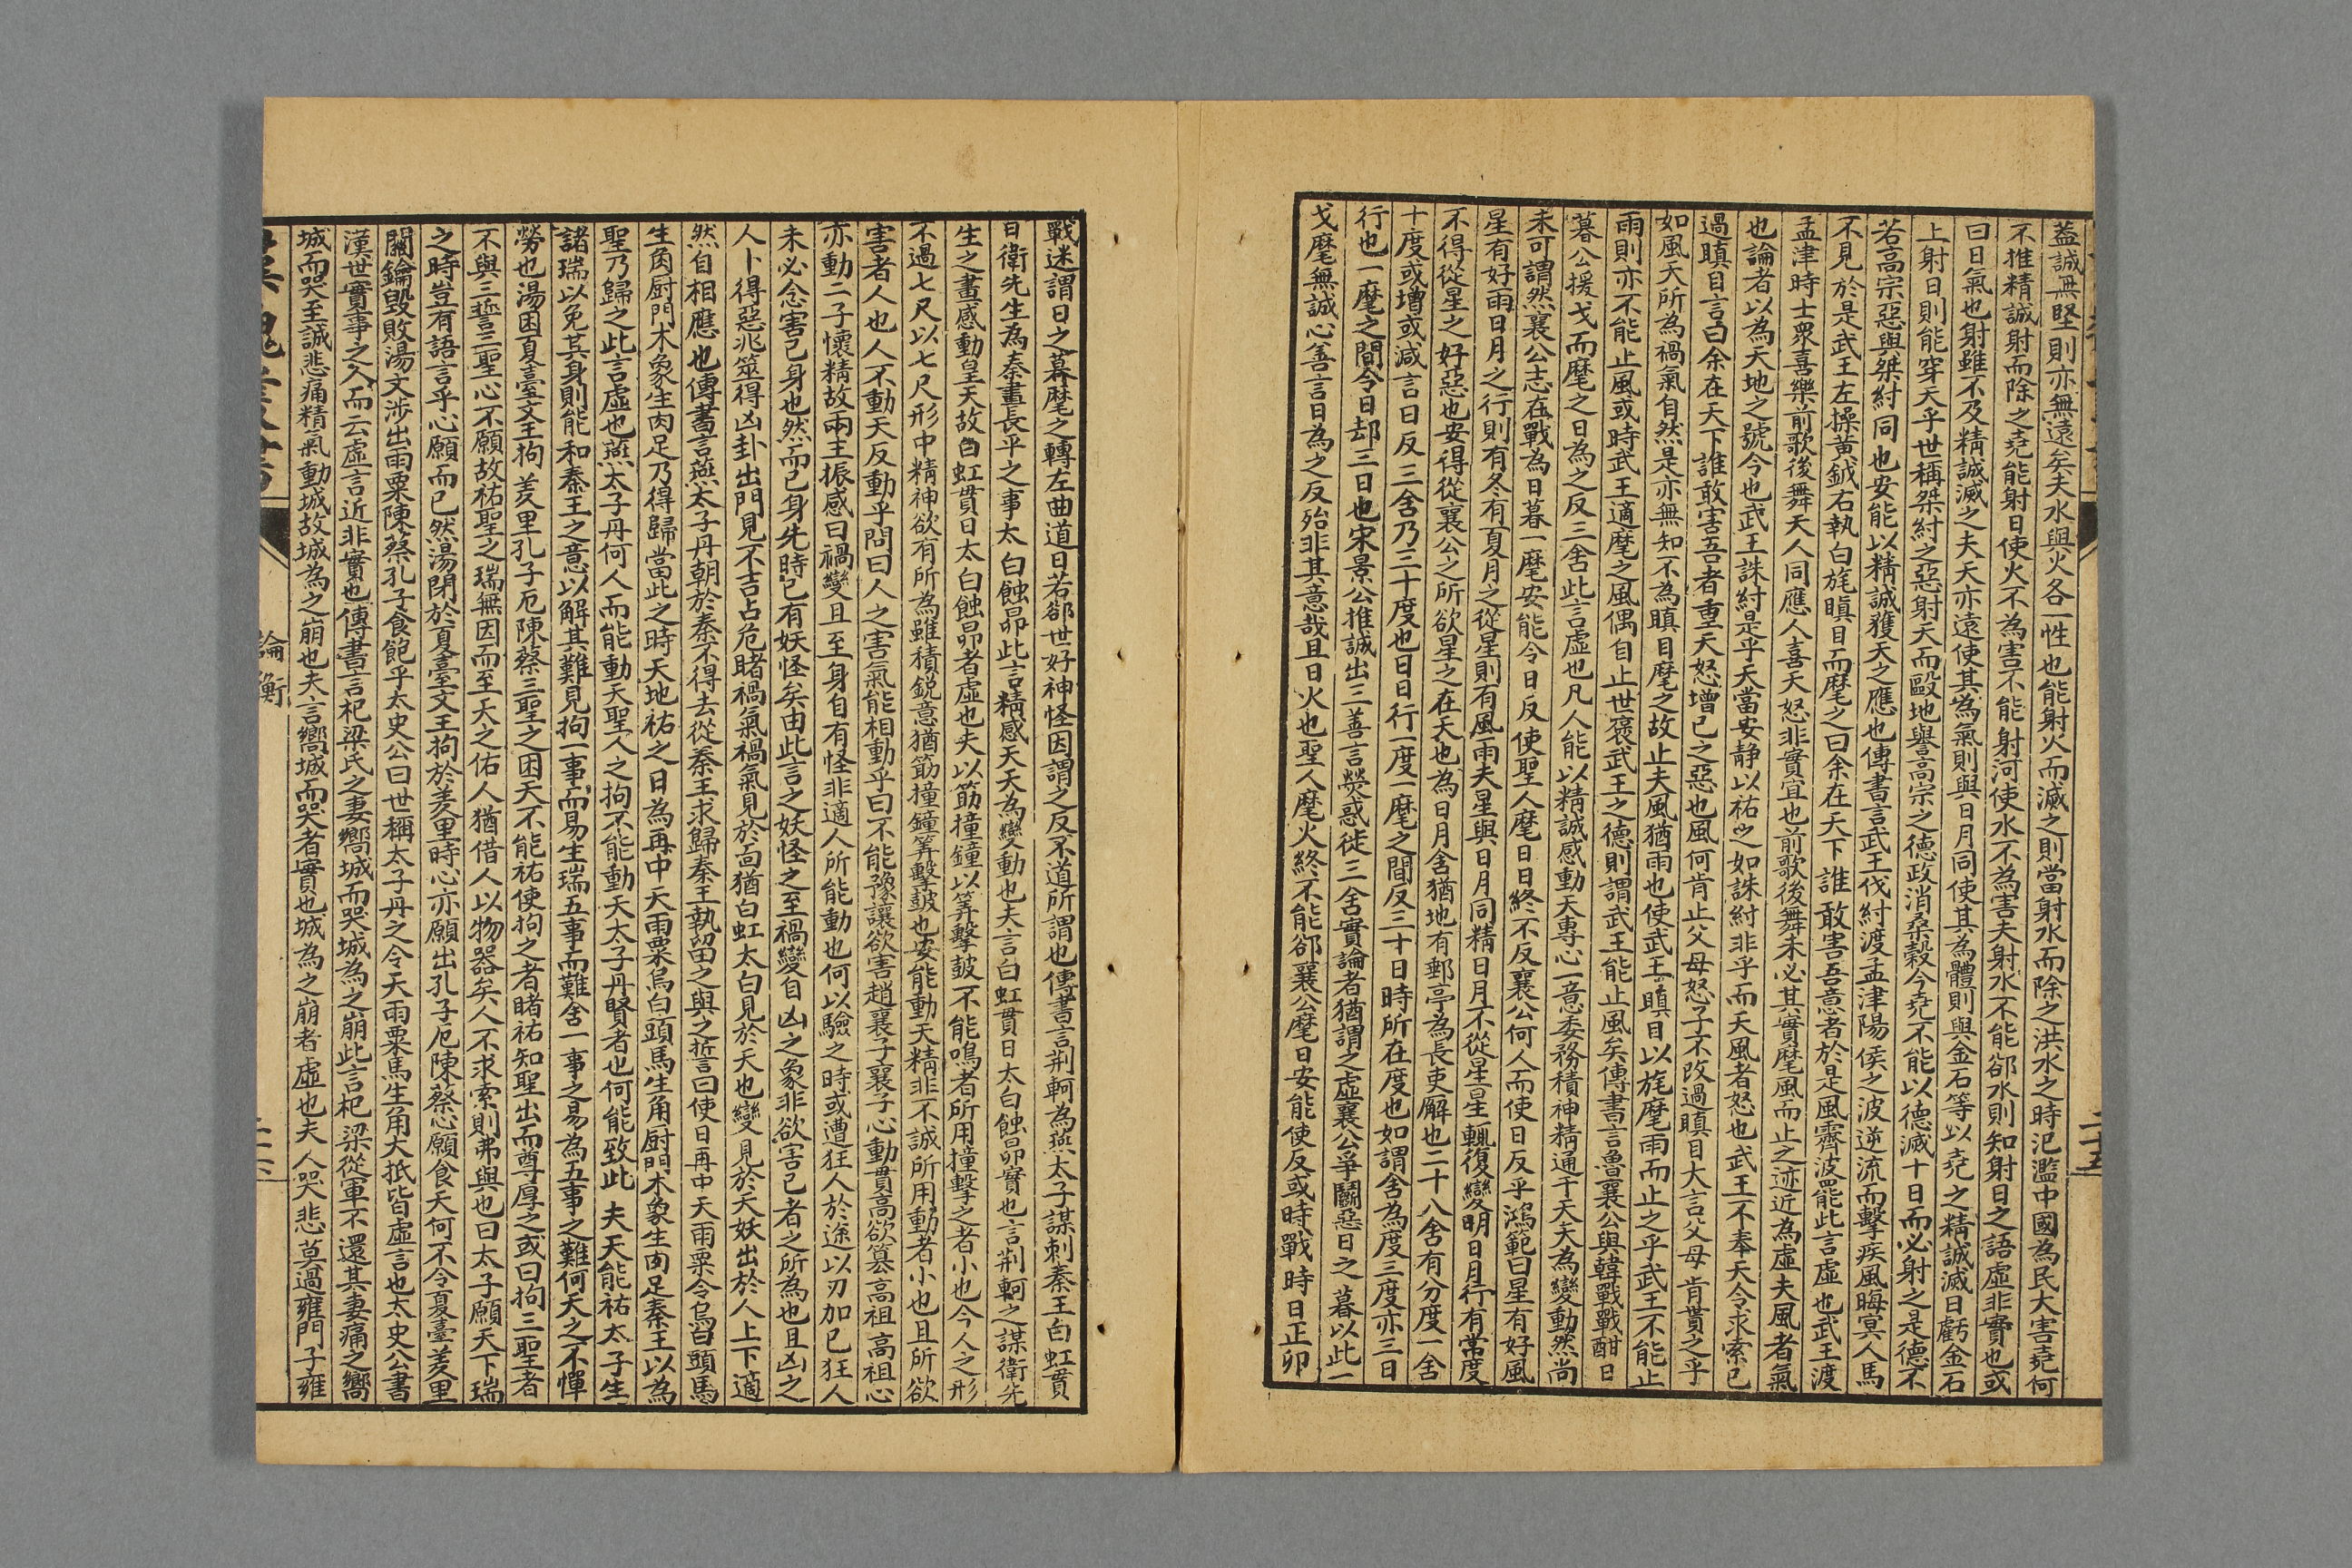 蓋誠無堅則亦無遠矣夫水與火各一性也能射火而滅之則當射水而除之洪水之時氾濫中國為民大害堯何
不推精誠射而除之堯能射日使火不為害不能射河使水不為害夫射水不能郤水則知射日之語虛非實也或
曰日氣也射雖不及精誠滅之夫天亦遠使其為氣則與日月同使其為體則與金石等以堯之精誠滅日虧金石
上射日則能穿天乎世稱桀紂之惡射天而毆地譽高宗之德政消桑穀今堯不能以德滅十日而必射之是德不
若高宗惡與桀紂同也安能以精誠獲天之應也傳書言武王伐紂渡孟津陽侯之波逆流而擊疾風晦冥人馬
不見於是武王左操黃鉞右執白旄瞋目而麾之曰余在天下誰敢害吾意者於是風霽波罷此言虛也武王渡
孟津時士衆喜樂前歌後舞天人同應人喜天怒非實宜也前歌後舞未必其實麾風而止之迹近為虛夫風者氣
也論者以為天地之號令也武王誅紂是乎天當安静以祐之如誅紂非乎而天風者怒也武王不奉天令求索已
過瞋目言曰余在天下誰敢害吾者重天怒增已之惡也風何肯止父母怒子不改過瞋目大言父母肯貰之乎
如風天所為禍氣自然是亦無知不為瞋目麾之故止夫風猶雨也使武王瞋目以旄麾雨而止之乎武王不能止
雨則亦不能止風或時武王適麾之風偶自止世襃武王之德則謂武王能止風矣傳書言魯襄公與韓戰戰酣日
暮公援戈而麾之日為之反三舍此言虛也凡人能以精誠感動天專心一意委務積神精通于天天為變動然尚
未可謂然襄公志在戰為日暮一麾安能令日反使聖人麾日日終不反襄公何人而使日反乎鴻範曰星有好風
星有好雨日月之行則有冬有夏月之從星則有風雨夫星與日月同精日月不從星星輒復變明日月行有常度
不得從星之好惡也安得從襄公之所欲星之在天也為日月舍猶地有郵亭為長吏廨也二十八舍有分度一舍
十度或增或減言日反三舍乃三十度也日日行一度一麾之間反三十日時所在度也如謂舍為度三度亦三日
行也一麾之間令日却三日也宋景公推誠出三善言熒惑徙三舍實論者猶謂之虛襄公爭鬭惡日之暮以此一
戈麾無誠心善言日為之反殆非其意哉且日火也聖人麾火終不能郤襄公麾日安能使反或時戰時日正卯
戰迷謂日之暮麾之轉左曲道日若郤世好神怪因謂之反不道所謂也傳書言荆軻為燕太子謀刺秦王白虹貫
日衛先生為秦畫長平之事太白蝕昴此言精感天天為變動也夫言白虹貫日太白蝕昴實也言荆軻之謀衛先
生之畫感動皇天故白虹貫日太白蝕昴者虛也夫以筯撞鐘以筭擊鼓不能鳴者所用撞擊之者小也今人之形
不過七尺以七尺形中精神欲有所為雖積鋭意猶筯撞鐘筭擊鼓也安能動天精非不誠所用動者小也且所欲
害者人也人不動天反動乎問曰人之害氣能相動乎曰不能豫讓欲害趙襄子襄子心動貫高欲篡高祖高祖心
亦動二子懷精故兩王振感曰禍變且至身自有怪非適人所能動也何以驗之時或遭狂人於途以刃加己狂人
未必念害己身也然而己身先時已有妖怪矣由此言之妖怪之至禍變自凶之象非欲害己者之所為也且凶之
人卜得惡兆筮得凶卦出門見不吉占危睹禍氣禍氣見於面猶白虹太白見於天也變見於天妖出於人上下適
然自相應也傳書言燕太子丹朝於秦不得去從秦王求歸秦王執留之與之誓曰使日再中天雨粟令烏白頭馬
生角厨門木象生肉足乃得歸當此之時天地祐之日為再中天雨粟烏白頭馬生角厨門木象生肉足秦王以為
聖乃歸之此言虛也燕太子丹何人而能動天聖人之拘不能動天太子丹賢者也何能致此夫天能祐太子生
諸瑞以免其身則能和秦王之意以解其難見拘一事而易生瑞五事而難舍一事之易為五事之難何天之不憚
勞也湯困夏臺文王拘羑里孔子厄陳蔡三聖之困天不能祐使拘之者睹祐知聖出而尊厚之或曰拘三聖者
不與三誓三聖心不願故祐聖之瑞無因而至天之佑人猶借人以物器矣人不求索則弗與也曰太子願天下瑞
之時豈有語言乎心願而已然湯閉於夏臺文王拘於羑里時心亦願出孔子厄陳蔡心願食天何不令夏臺羑里
關鑰毀敗湯文涉出雨粟陳蔡孔子食飽乎太史公曰世稱太子丹之令天雨粟馬生角大抵皆虛言也太史公書
漢世實事之人而云虛言近非實也傳書言杞梁氏之妻嚮城而哭城為之崩此言杞梁從軍不還其妻痛之嚮
城而哭至誠悲痛精氣動城故城為之崩也夫言嚮城而哭者實也城為之崩者虛也夫人哭悲莫過雍門子雍
論衡